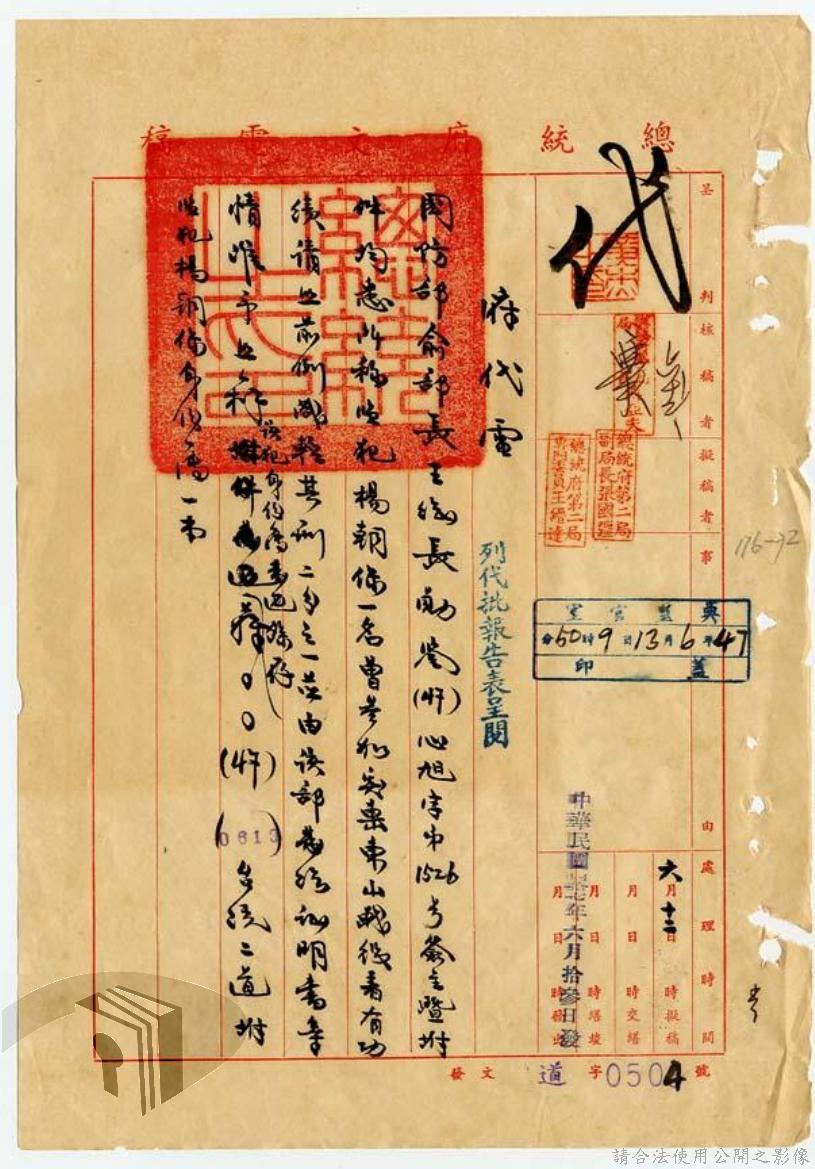 總統府文電稿
呈判
核稿者
擬稿者
事由
處理時間
代
總統府第二局副局長張國疆
總統府第二局專門委員王縉達
176-72
吳監官室
47年6月13日9時50分
蓋印
六月十二日 時擬稿
月 日 時交繕
月 日 時繕竣
月 日 時
中華民國肆七年六月拾參日發
發文 道字0504號
府代電
列代批報告表呈閱
國防部俞部長王總長勛鑒(47)心旭字第1526號簽呈暨附
件均悉所稱監犯楊朝倫一名曾參加突擊東山戰役著有功
績請照前例減輕其刑二分之一並由該部發給證明書等
情准予照辦
該犯身份簿
(47)
(0613)台統二道附
監犯楊朝倫身份簿一本
請合法使用公開之影像